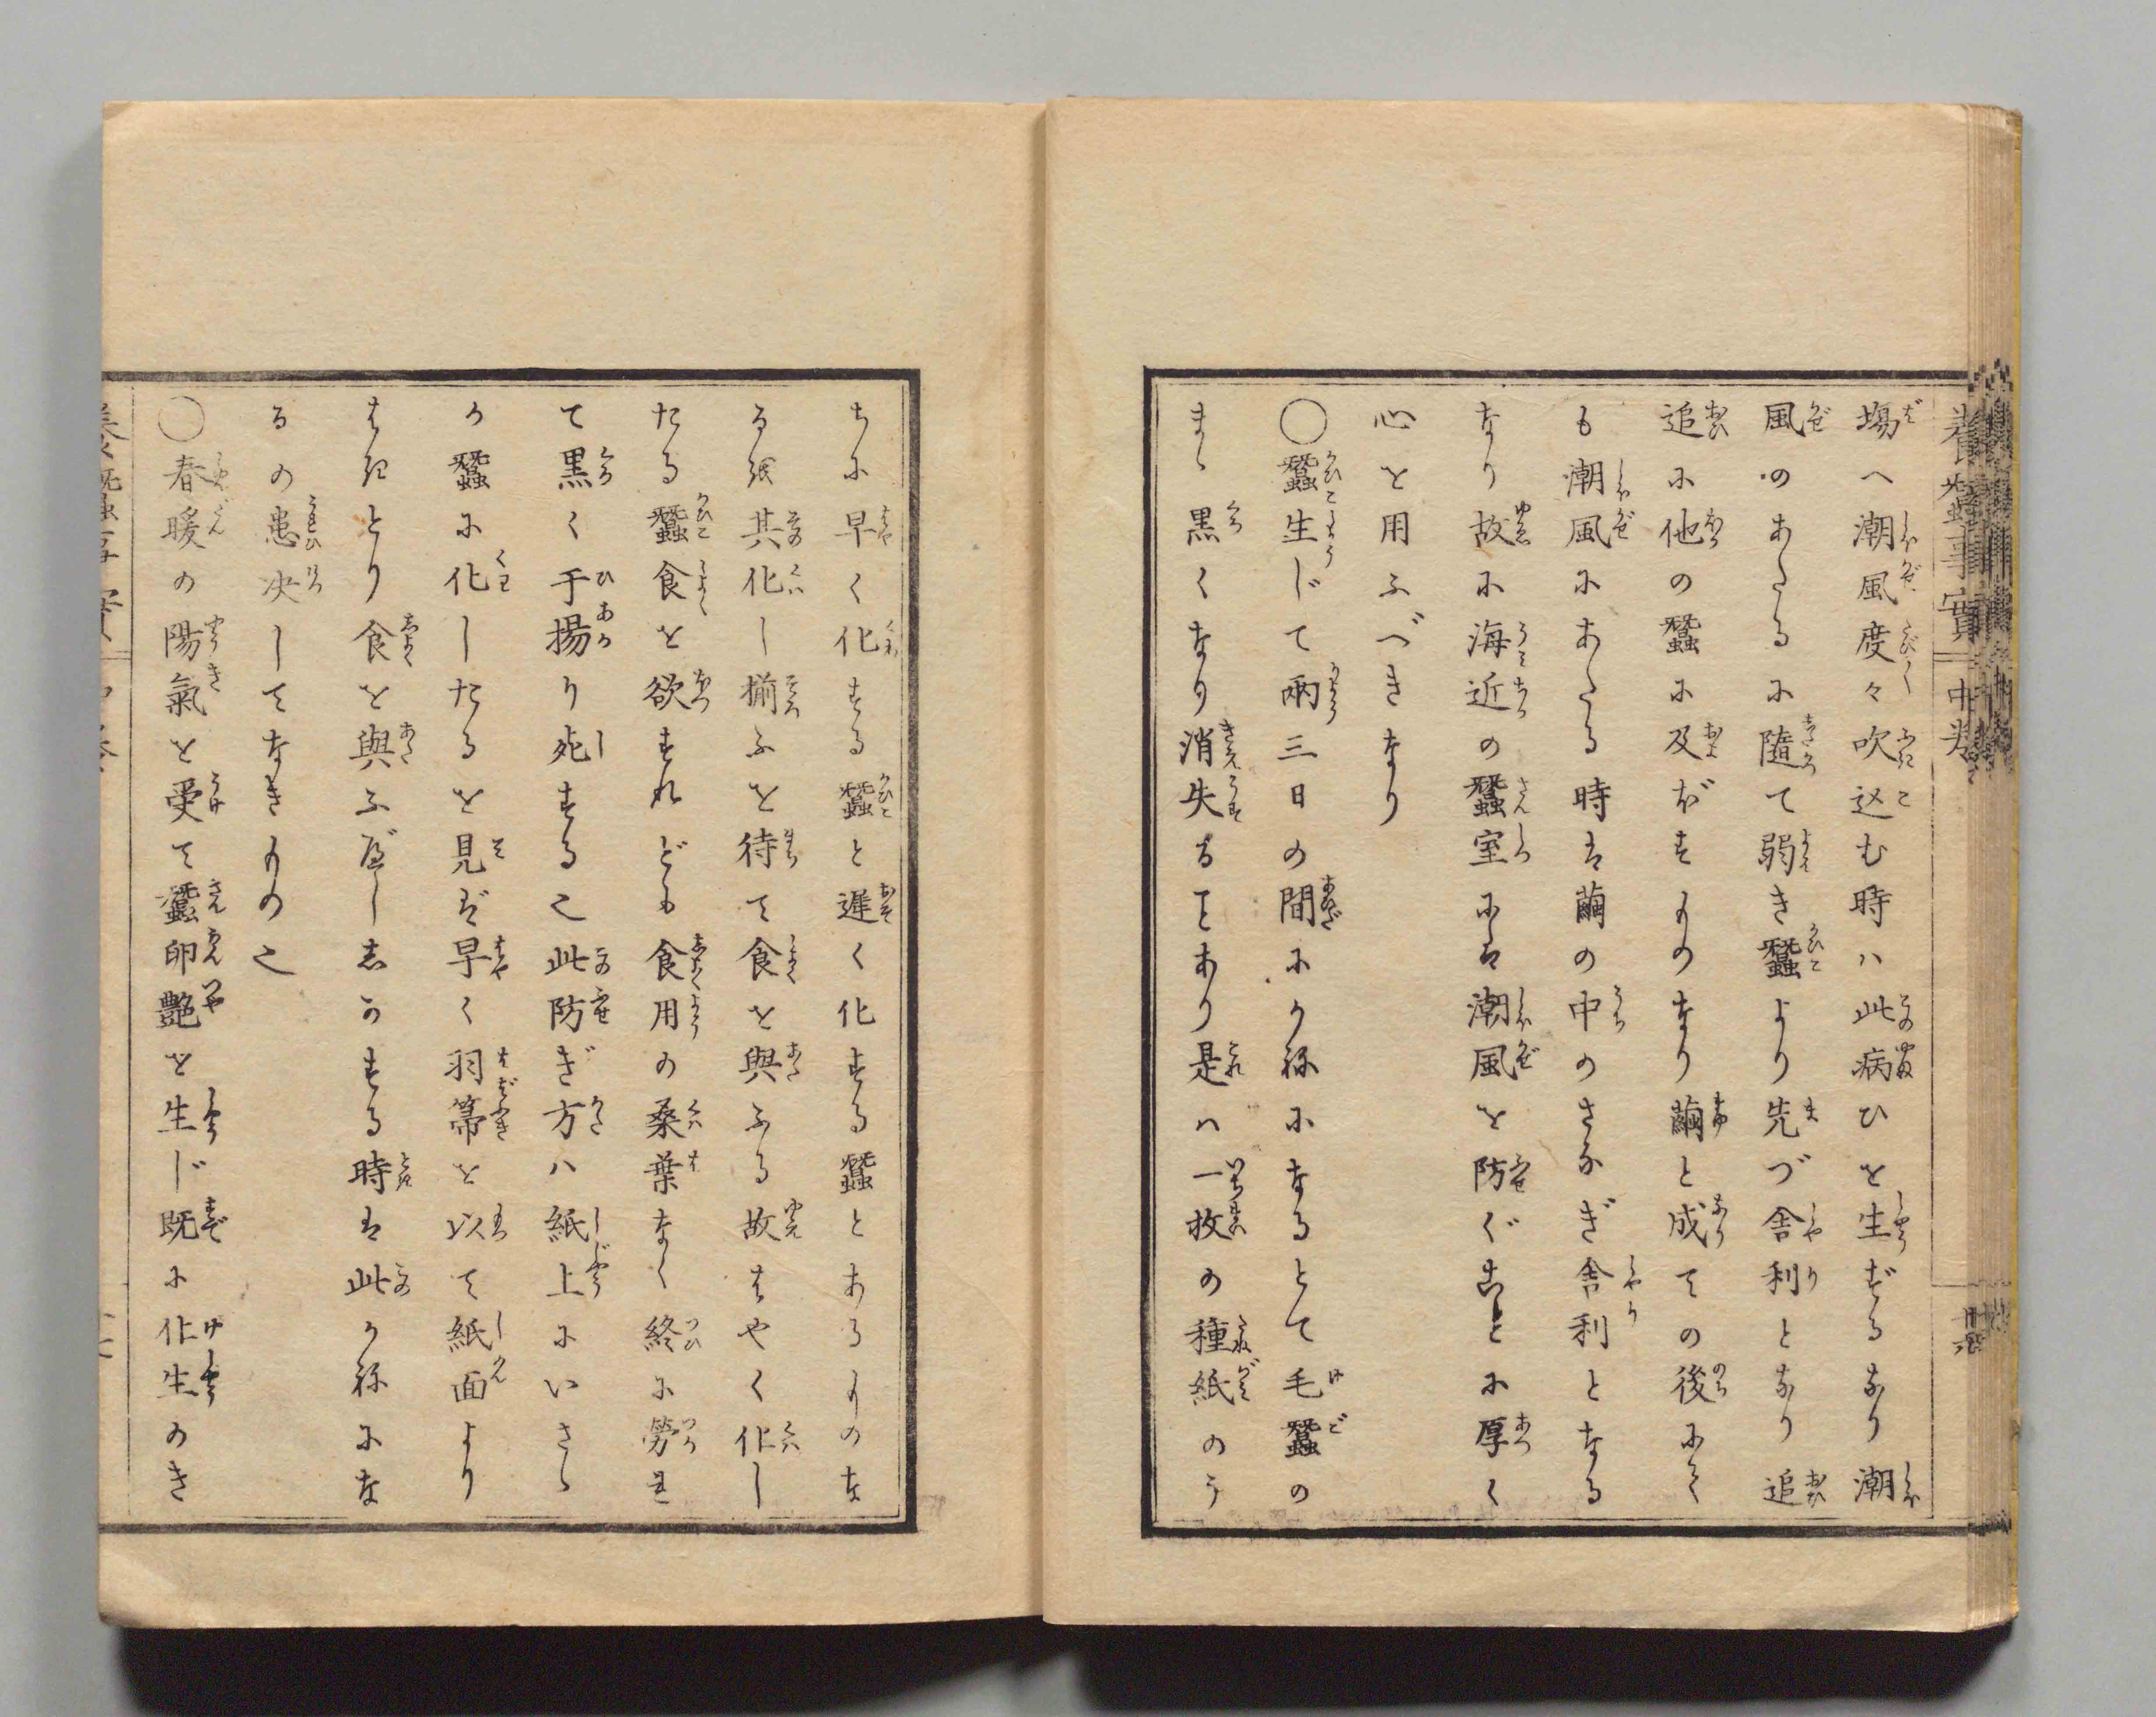 養蠶事實 中巻
場へ潮風度々吹込む時ハ此病ひを生ずるなり潮
風のあたるに隨て弱き蠶より先づ舎利となり追
追に他の蠶に及ぼすものなり繭と成ての後にて
も潮風にあたる時は繭の中のさなぎ舎利となる
なり故に海近の蠶室には潮風を防ぐことに厚く
心を用ふべきなり
○蠶生じて兩三日の間にかねになるとて毛蠶の
まゝ黒くなり消失るヿあり是ハ一枚の種紙のう
ちに早く化する蠶と遲く化する蠶とあるものな
る級其化し揃ふを待て食を與ふる故はやく化し
たる蠶食を欲すれども食用の桑葉なく終に勞れ
て黒く干揚り死する也此防ぎ方ハ紙上にいさゝ
か蠶に化したるを見ば早く羽箒を以て紙面より
はきとり食を與ふべししかする時は此かねにな
るの患决してなきもの也
○春暖の陽氣を受て蠶卵艶を生じ既に化生のき